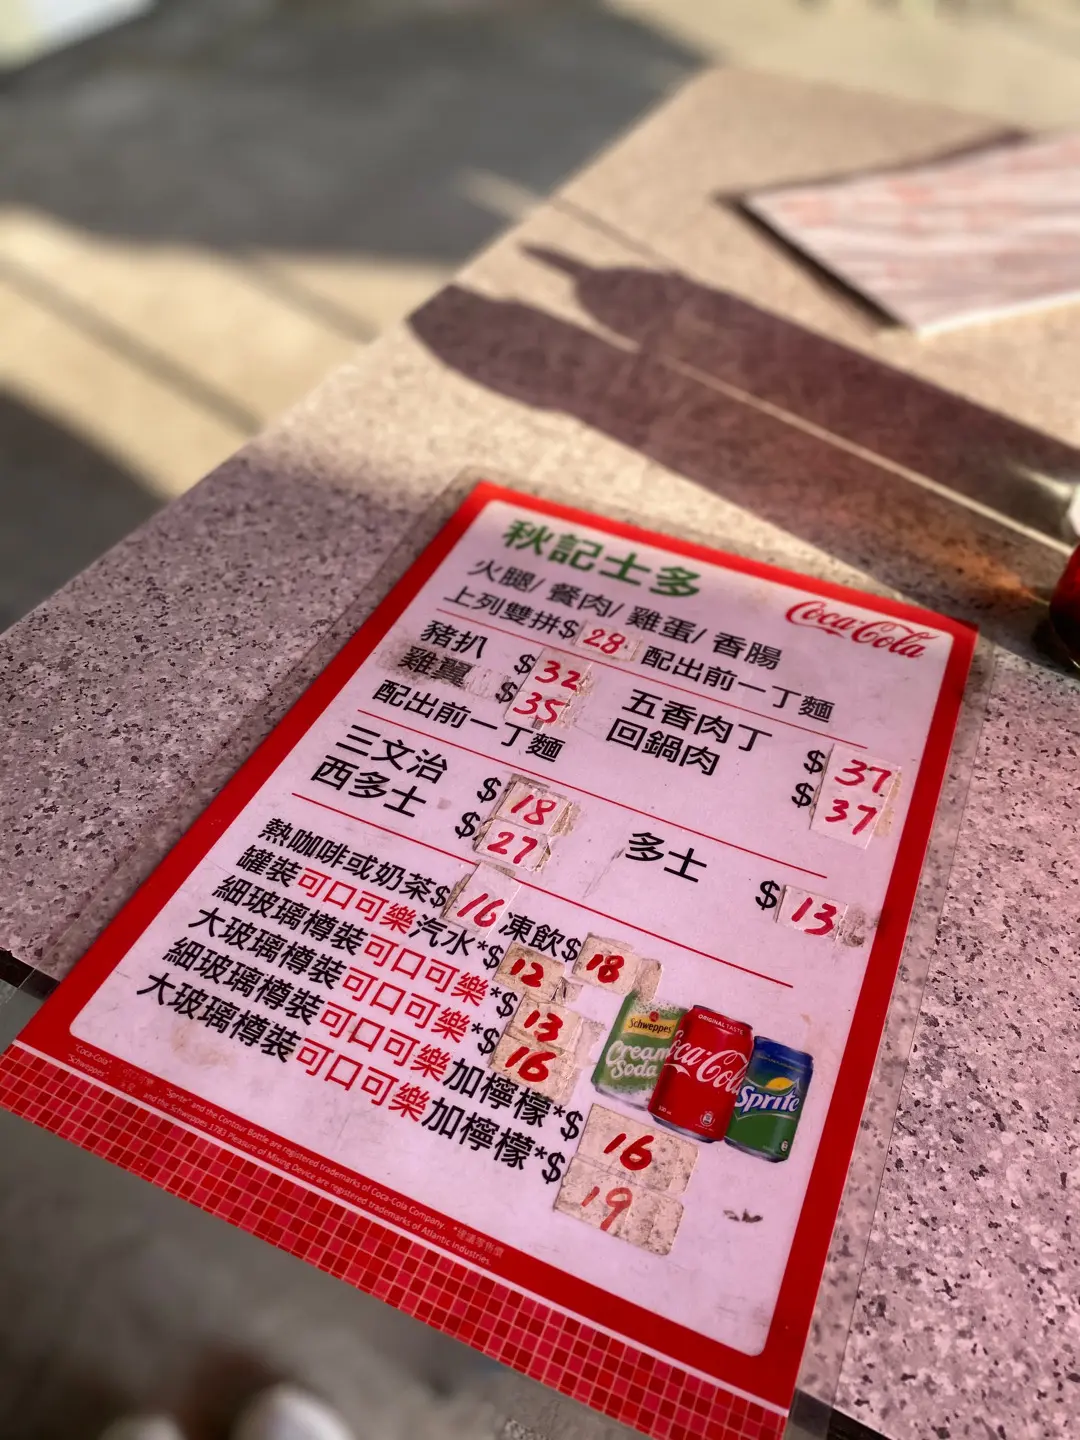 秋記士多
Coca-Cola
火腿/ 餐肉/ 雞蛋/ 香腸
上列雙拼$ 28 配出前一丁麵
豬扒 $ 32
雞翼 $ 35
配出前一丁麵
五香肉丁 $ 37
回鍋肉 $ 37
三文治 $ 18
西多士 $ 27
多士 $ 13
熱咖啡或奶茶$ 16 凍飲$ 18
罐裝可口可樂汽水*$ 12
細玻璃樽裝可口可樂*$ 13
大玻璃樽裝可口可樂*$ 16
細玻璃樽裝可口可樂加檸檬*$ 16
大玻璃樽裝可口可樂加檸檬*$ 19
Schweppes
Cream Soda
ORIGINAL TASTE
Coca-Cola
Sprite
"Coca-Cola" "Sprite" and the Contour Bottle are registered trademarks of Coca-Cola Company. *建議零售價
"Schweppes" and the Schweppes 1783 Pleasure of Mixing Device are registered trademarks of Atlantic Industries.